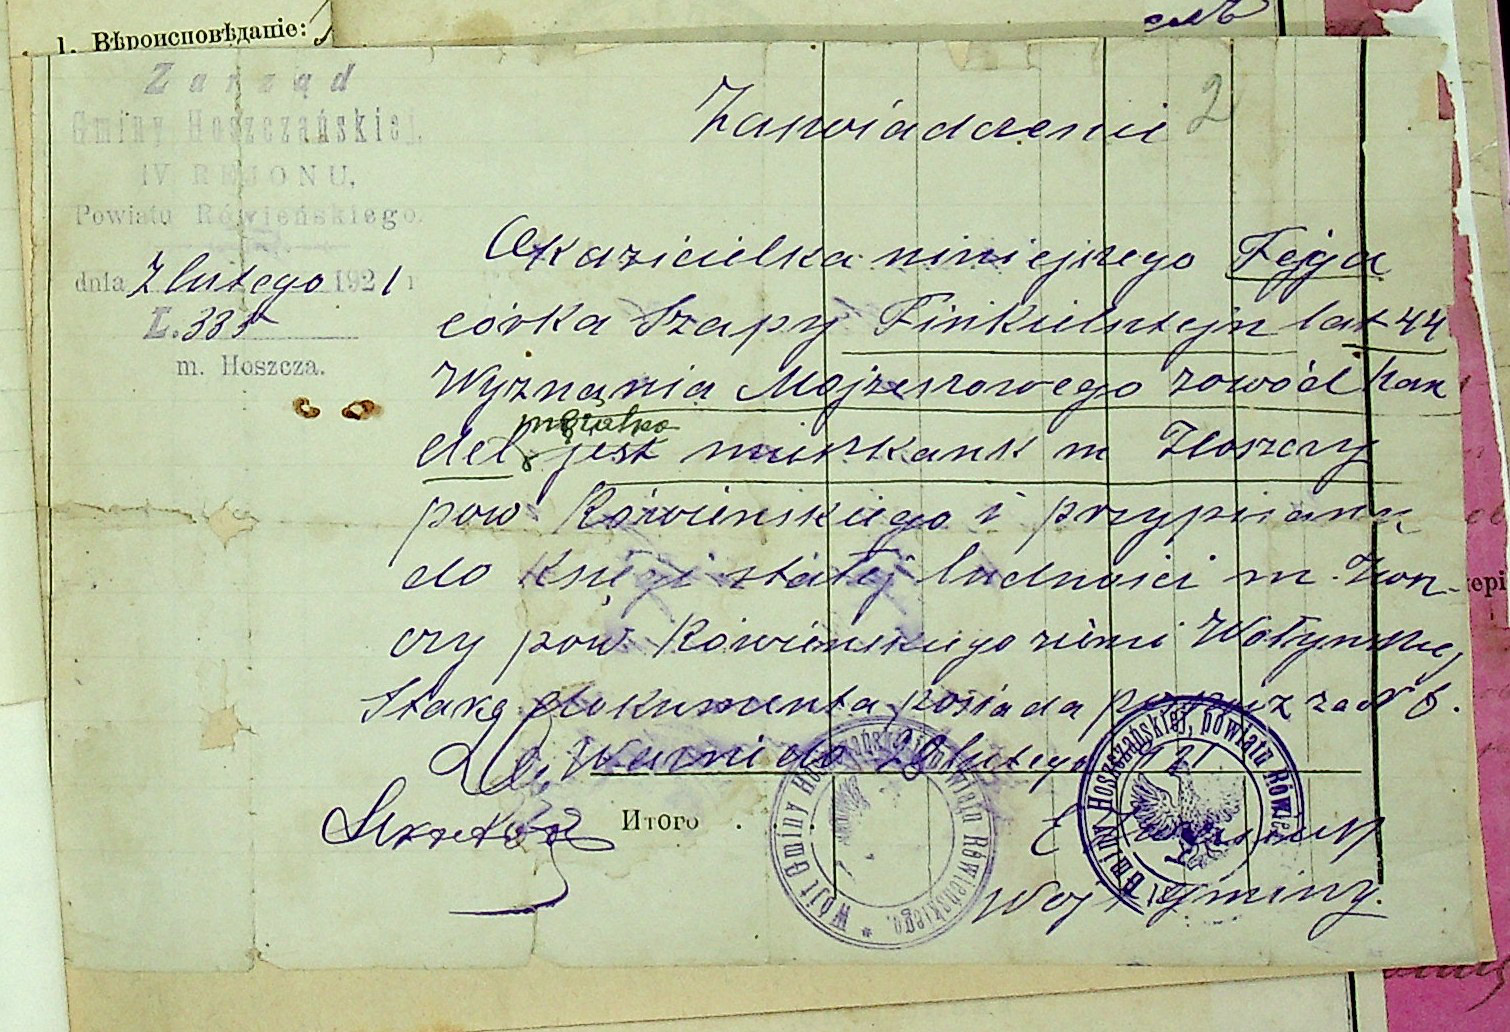 1. Вѣроисповѣданіе:
Zarząd
Gminy Hoszczańskiej.
IV REJONU,
Powiatu Rówieńskiego.
dnia 7 lutego 1921 r
L. 335
m. Hoszcza.
Zaswiadczenie 2
Okazicielka niniejszego Fejga
córka Szapy Finkielsztejn lat 44
Wyznania Mojżeszowego zawód han
del mężatka jest mieszkank m Hoszczy
pow. Rówienskiego i przypisana
do księgi stałej ludności m. Hosz-
czy pow. Rówienskiego ziemi Wołynskiej
Stare dokumenta posiada paszport za № 6.
Ważni do 20 lutego 1921
Sekretarz
Итого .
Wójt gminy.
Wójt Gminy Hoszczańskiej powiatu Rówieńskiego. *
Gminy Hoszczańskiej, powiatu Rówień